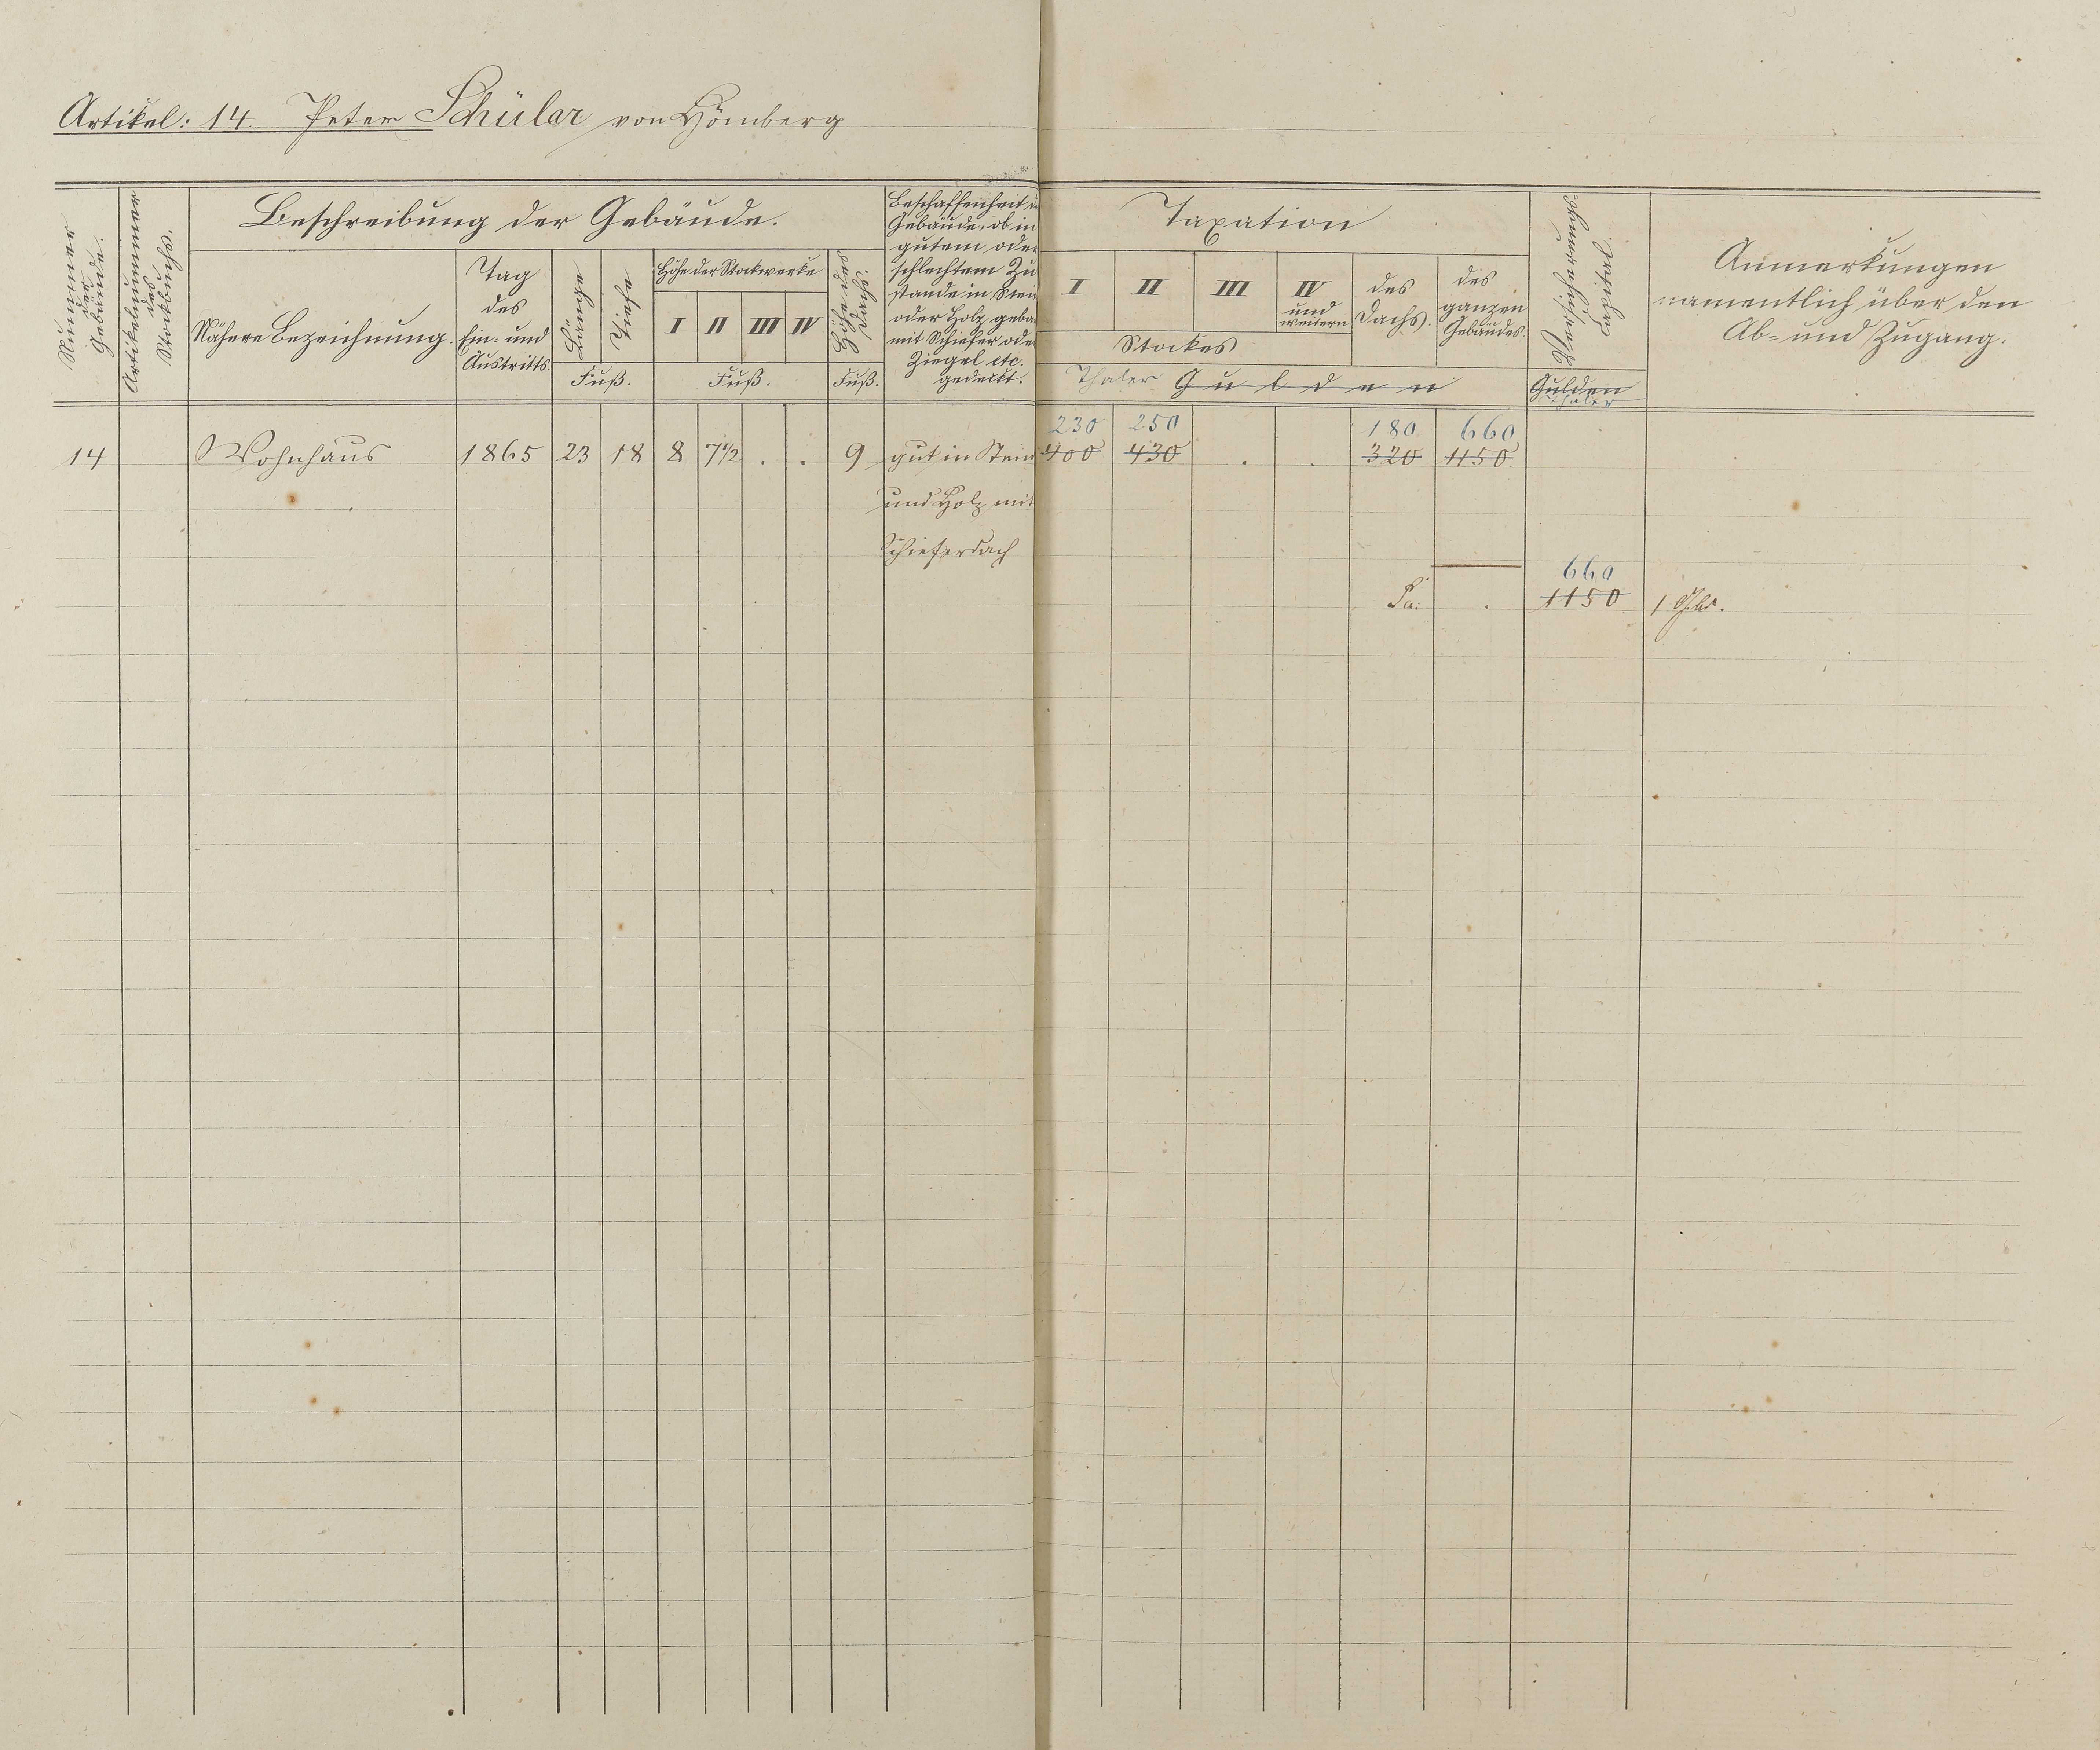 Artikel: 14. Peter Schüler von Hömberg
Nummer
der
Gebäude.
Artikelnummer
des
Stockbuchs.
Beschreibung der Gebäude.
Nähere Bezeichnung.
Tag
des
Ein- und
Austritts.
Länge
Tiefe
Fuß.
Höhe der Stockwerke
I II III IV
Fuß.
Höhe des
Dachs.
Fuß.
Beschaffenheit d
Gebäude, ob in
gutem oder
schlechtem Zu
stande in Stein
oder Holz gebau
mit Schiefer oder
Ziegel etc.
gedeckt.
Taxation
I II III IV
und
weitern
Stockes
des
Dachs.
des
ganzen
Gebäudes.
Thaler Gulden
Versicherungs
capital.
Gulden
Thaler
Anmerkungen
namentlich über den
Ab- und Zugang.
230 250 180 660
14 Wohnhaus 1865 23 18 8 7 1/2 . . 9 gut in Stein 400 430 . . 320 1150
und Holz mit
Schieferdach
660
Sa: . 1150